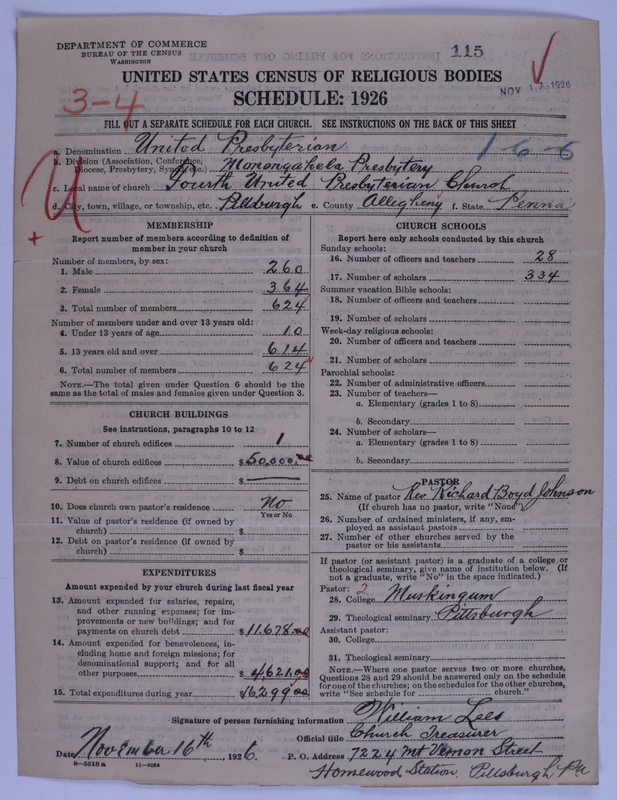 DEPARTMENT OF COMMERCE
BUREAU OF THE CENSUS
WASHINGTON
115
NOV 17 1926
UNITED STATES CENSUS OF RELIGIOUS BODIES
SCHEDULE: 1926
3-4
FILL OUT A SEPARATE SCHEDULE FOR EACH CHURCH. SEE INSTRUCTIONS ON THE BACK OF THIS SHEET
a. Denomination United Presbyterian
1-6-6
b. Division (Association, Conference, Diocese, Presbytery, Synod, etc.) Monongahela Presbytery
c. Local name of church Fourth United Presbyterian Church
d. City, town, village, or township, etc. Pittsburgh e. County Allegheny f. State Penna
MEMBERSHIP
Report number of members according to definition of
member in your church
Number of members, by sex:
1. Male 260
2. Female 364
3. Total number of members 624
Number of members under and over 13 years old:
4. Under 13 years of age 10
5. 13 years old and over 614
6. Total number of members 624
NOTE.—The total given under Question 6 should be
same as the total of males and females given under Question 3.
CHURCH BUILDINGS
See instructions, paragraphs 10 to 12
7. Number of church edifices 1
8. Value of church edifices $50,000.00
9. Debt on church edifices $
10. Does church own pastor's residence No
Yes or No
11. Value of pastor's residence (if owned by
church) $
12. Debt on pastor's residence (if owned by
church) $
EXPENDITURES
Amount expended by your church during last fiscal year
13. Amount expended for salaries, repairs,
and other running expenses; for im-
provements or new buildings; and for
payments on church debt $11,678.00
14. Amount expended for benevolences, in-
cluding home and foreign missions; for
denominational support; and for all
other purposes $4,621.00
15. Total expenditures during year $16,299.00
CHURCH SCHOOLS
Report here only schools conducted by this church
Sunday schools:
16. Number of officers and teachers 28
17. Number of scholars 334
Summer vacation Bible schools:
18. Number of officers and teachers
19. Number of scholars
Week-day religious schools:
20. Number of officers and teachers
21. Number of scholars
Parochial schools:
22. Number of administrative officers
23. Number of teachers—
a. Elementary (grades 1 to 8)
b. Secondary
24. Number of scholars—
a. Elementary (grades 1 to 8)
b. Secondary
PASTOR
25. Name of pastor Rev. Richard Boyd Johnson
(If church has no pastor, write "None")
26. Number of ordained ministers, if any, em-
ployed as assistant pastors
27. Number of other churches served by the
pastor or his assistants
If pastor (or assistant pastor) is a graduate of a college or
theological seminary, give name of institution below. (If
not a graduate, write "No" in the space indicated.)
Pastor: 2
28. College Muskingum
29. Theological seminary Pittsburgh
Assistant pastor:
30. College
31. Theological seminary
NOTE.—Where one pastor serves two or more churches,
Questions 28 and 29 should be answered only on the schedule
for one of the churches; on the schedules for the other churches,
write "See schedule for church."
Signature of person furnishing information William Lees
Official title Church Treasurer
Date November 16th, 1926. P. O. Address 7224 Mt Vernon Street
8-5518a 11-9084
Homewood Station, Pittsburgh Pa